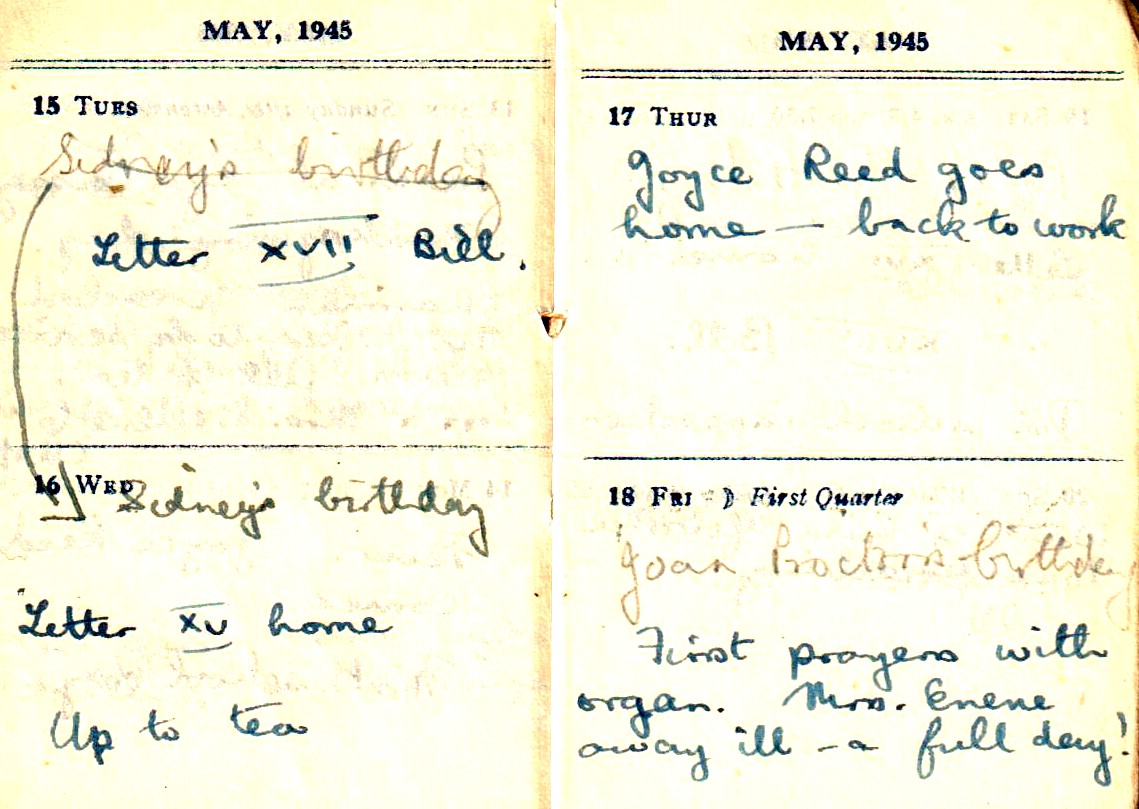 MAY, 1945
15 TUES
Sidney's birthday
Letter XVII Bill.
16 WED Sidney's birthday
Letter XV home
Up to tea
MAY, 1945
17 THUR
Joyce Reed goes
home — back to work
18 FRI ☽ First Quarter
Joan Proctor's birthday
First prayers with
organ. Mrs. Enene
away ill - a full day!